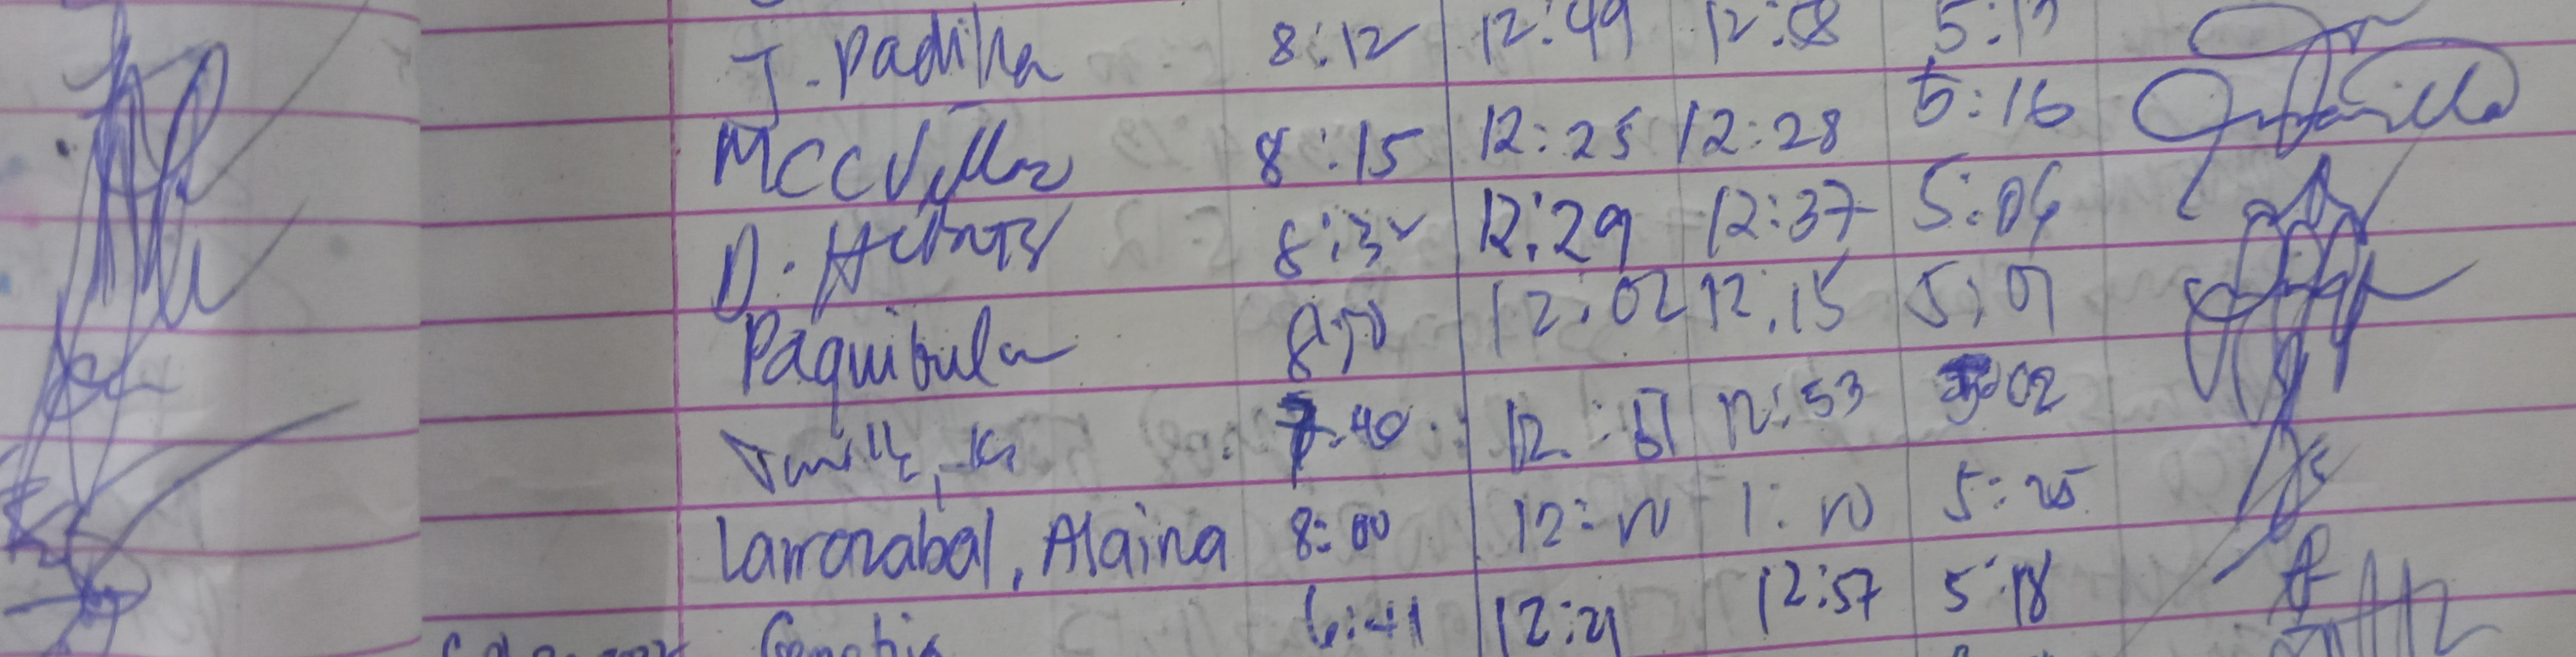 J. Padilla 8:12 12:49 12:58 5:13
MCCVillar 8:15 12:25 12:28 5:16
D. 8:32 12:29 12:37 5:04
Paquibula 8:50 12:02 12:15 5:01
7:40 12:51 12:53 5:02
Larrazabal, Alaina 8:00 12:10 1:10 5:25
6:41 12:21 12:57 5:18